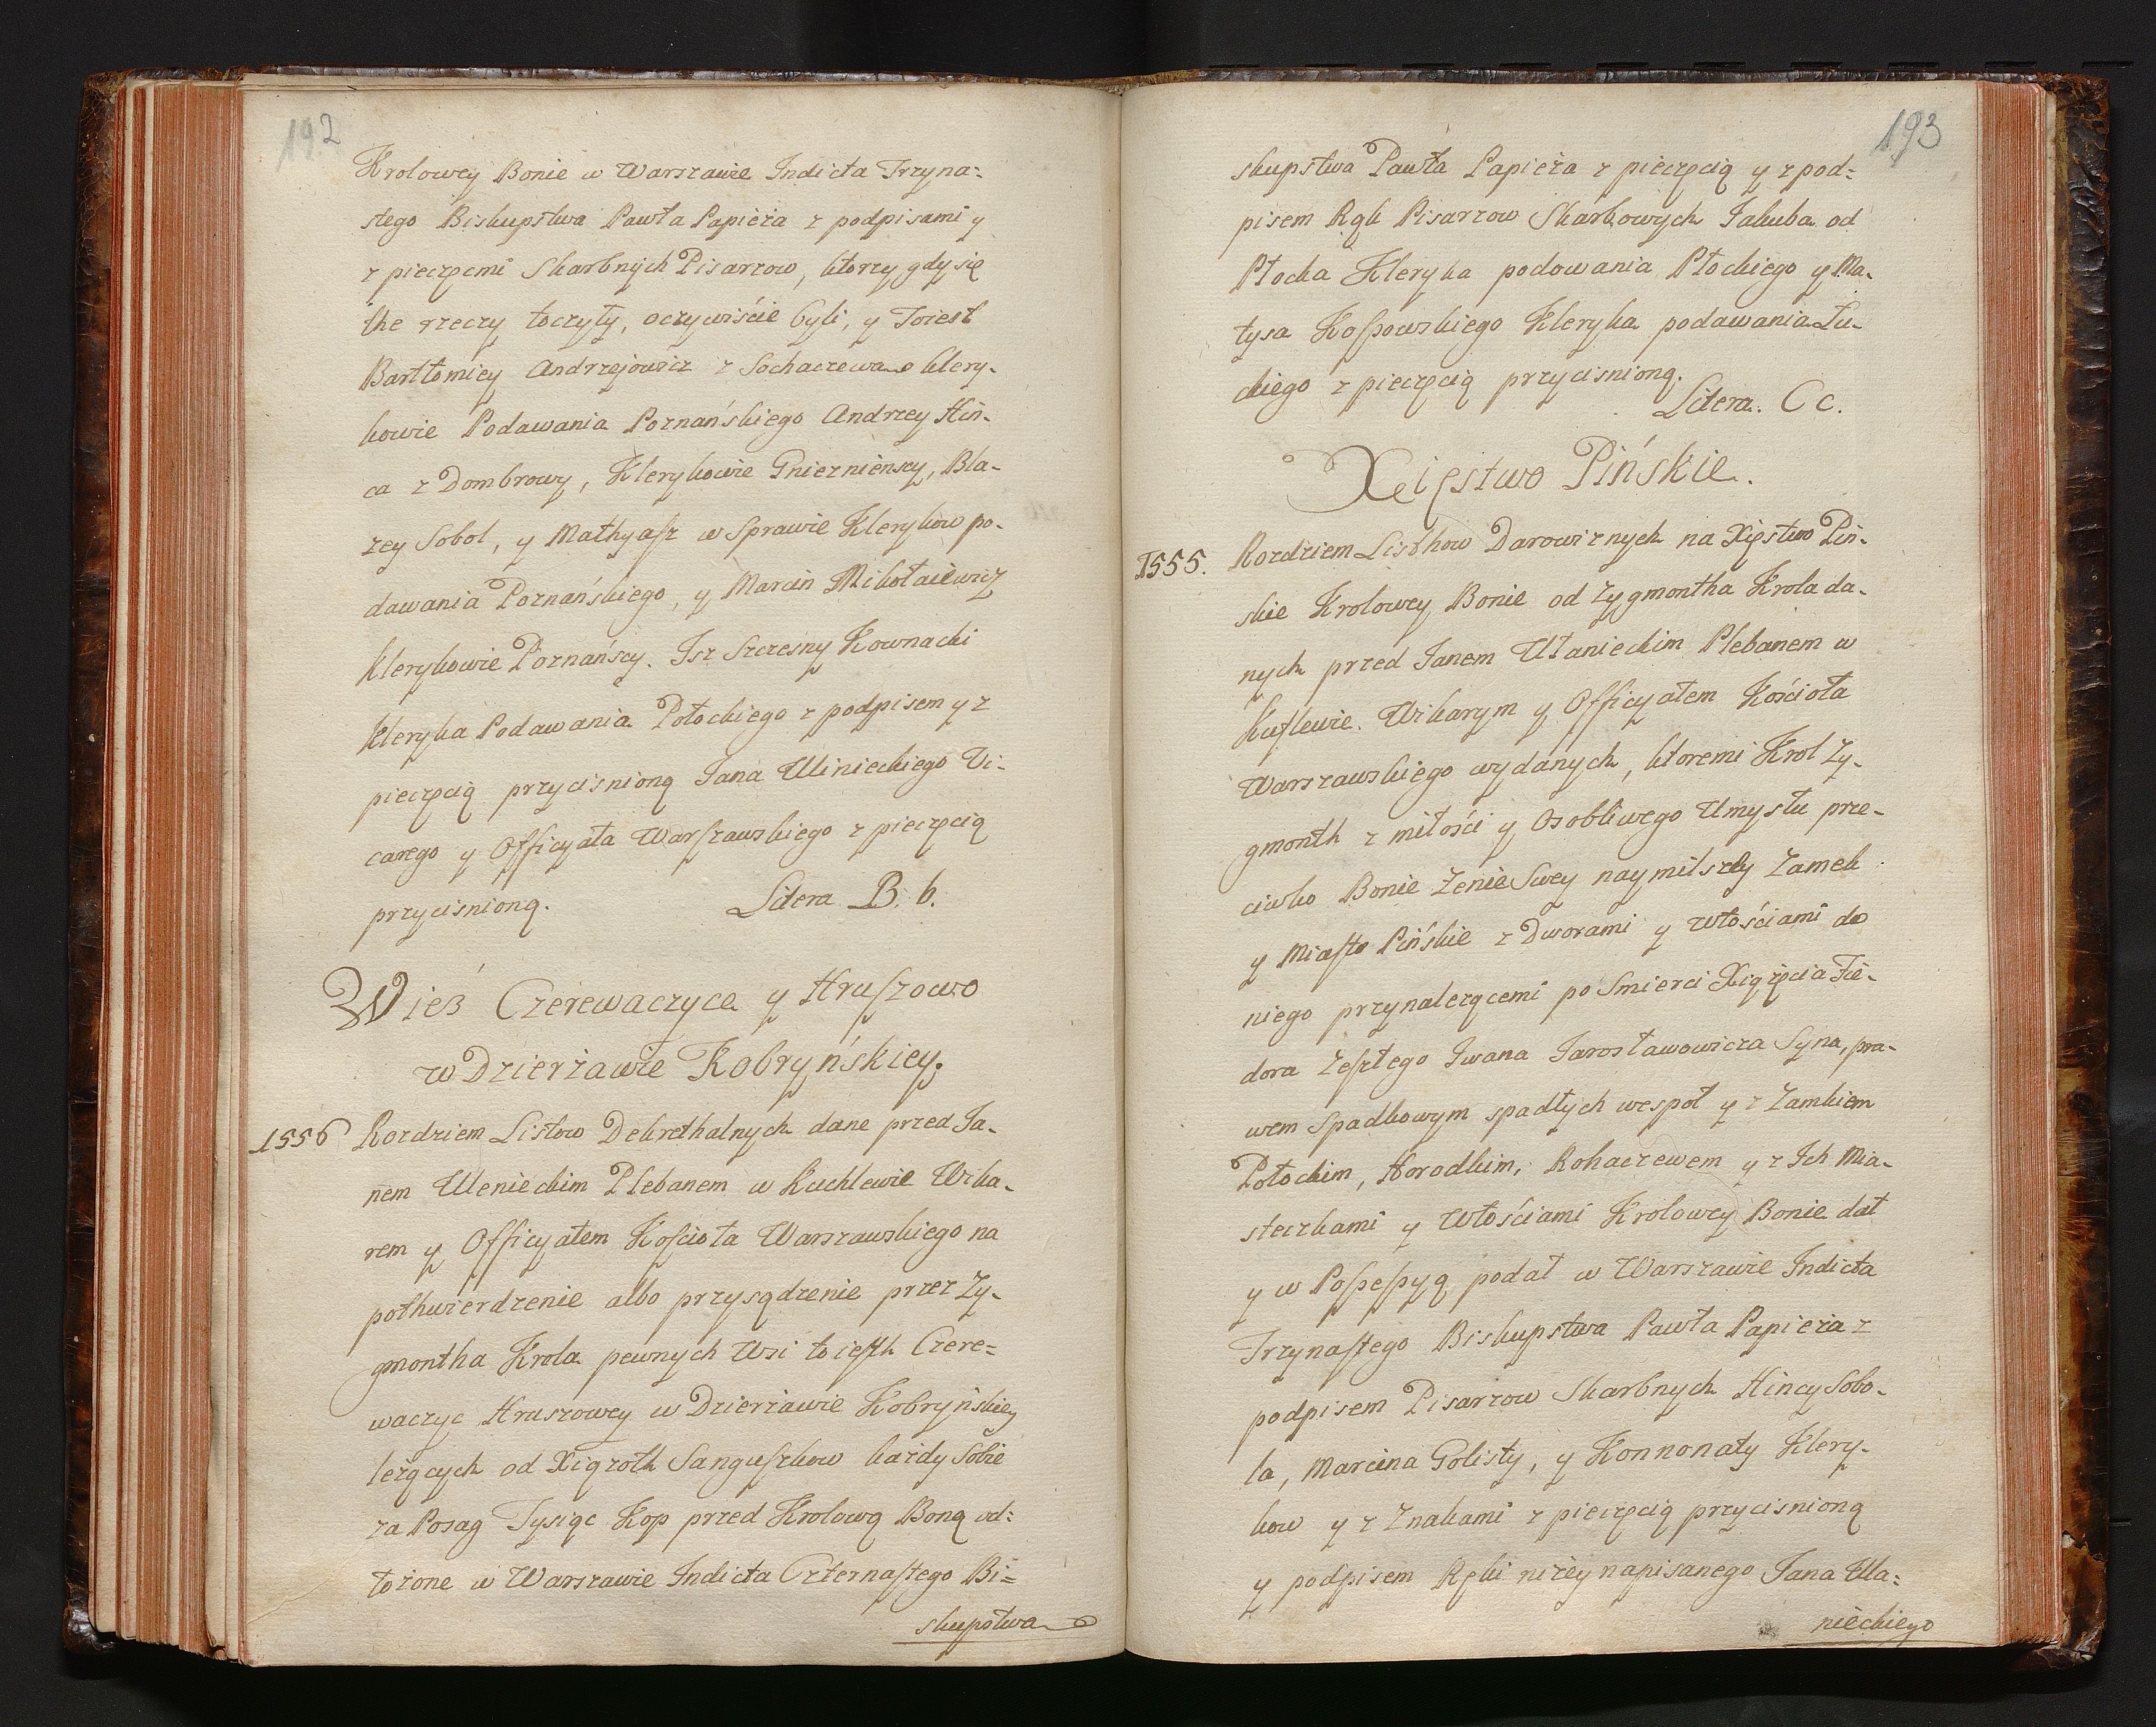 192
Krolowey Bonie w Warszawie Indicta Trzyna:
stego Biskupstwa Pawła Papieża z podpisami y
z pieczęcmi Skarbnych Pisarzow, ktorzy, gdy się
the rzeczy toczyły, oczywiście byli, y Toiest
Bartłomiey Andrzejowicz z Sochaczewa klery-
kowie Podawania Poznańskiego Andrzey Hin-
ca z Dombrowy, Klerykowie Gnieznienscy, Bla-
zey Sobol, y Mathyasz w Sprawie Klerykow po-
dawania Poznańskiego, y Marcin Mikołaiewicz
klerykowie Poznańscy. Jsz Szczesny Kownacki
kleryka Podawania Połockiego z podpisem y z
pieczęcią przycisnioną Jana Ulinieckiego Vi-
carego y Officyała Warszawskiego z pieczęcią
przycisnioną. Litera B. b.
Wieś Czerewaczyce y Hruszowo
w Dzierżawie Kobryńskiey.
1556 Rozdziem Listow Dekrethalnych dane przed Ja-
nem Ulenieckim Plebanem w Kuchlewie Wika-
rem y Officyałem Kościoła Warszawskiego na
pothwierdzenie albo przysądzenie przez Zy-
gmontha Krola pewnych Wsi to iesth Czere=
waczyc Hruszowey w Dzierżawie Kobryńskiey
leżących od Xiąząth Sanguszkow każdy Sobie
za Posag Tysiąc Kop przed Krolową Boną od:
łożone w Warszawie Indicta Czternastego Bi=
skupstwa
193
skupstwa Pawła Papieża z pieczęcią y z pod:
pisem Rąk Pisarzow Skarbowych Jakuba od
Płocka Kleryka podowania Płockiego y Ma-
tysa Kossowskiego Kleryka podawania Łu-
ckiego z pieczęcią przycisnioną.
Litera. C c.
Xięstwo Pińskie.
1555. Rozdziem Listhow Darowiznych na Xięstwo Piń-
skie Krolowey Bonie od Zygmontha Krola da-
nych przed Janem Ułanieckim Plebanem w
Kuflewie. Wikarym y Officyałem Kościoła
Warszawskiego wydanych, ktoremi Krol Zy-
gmonth z miłości y Osobliwego Umysłu prze-
ciwko Bonie Żenie Swey naymilszey Zamek
y Miasto Pińskie z Dworami y Włościami do
niego przynalezącemi po Smierci Xiążęcia Fie-
dora Zeszłego Iwana Jarosławowicza Syna, pra-
wem Spadkowym spadłych wespoł y z Zamkiem
Połockim, Horodkim, Rohaczewem y z Ich Mia-
steczkami y Włościami Krolowey Bonie dał
y w Possessyą podał w Warszawie Indicta
Trzynastego Biskupstwa Pawła Papieża z
podpisem Pisarzow Skarbnych Hincy Sobo-
la, Marcina Golisty, y Konnonaty Klery-
kow y z Znakami z pieczęcią przycisnioną
y podpisem Ręki niżey napisanego Jana Ula:
nieckiego